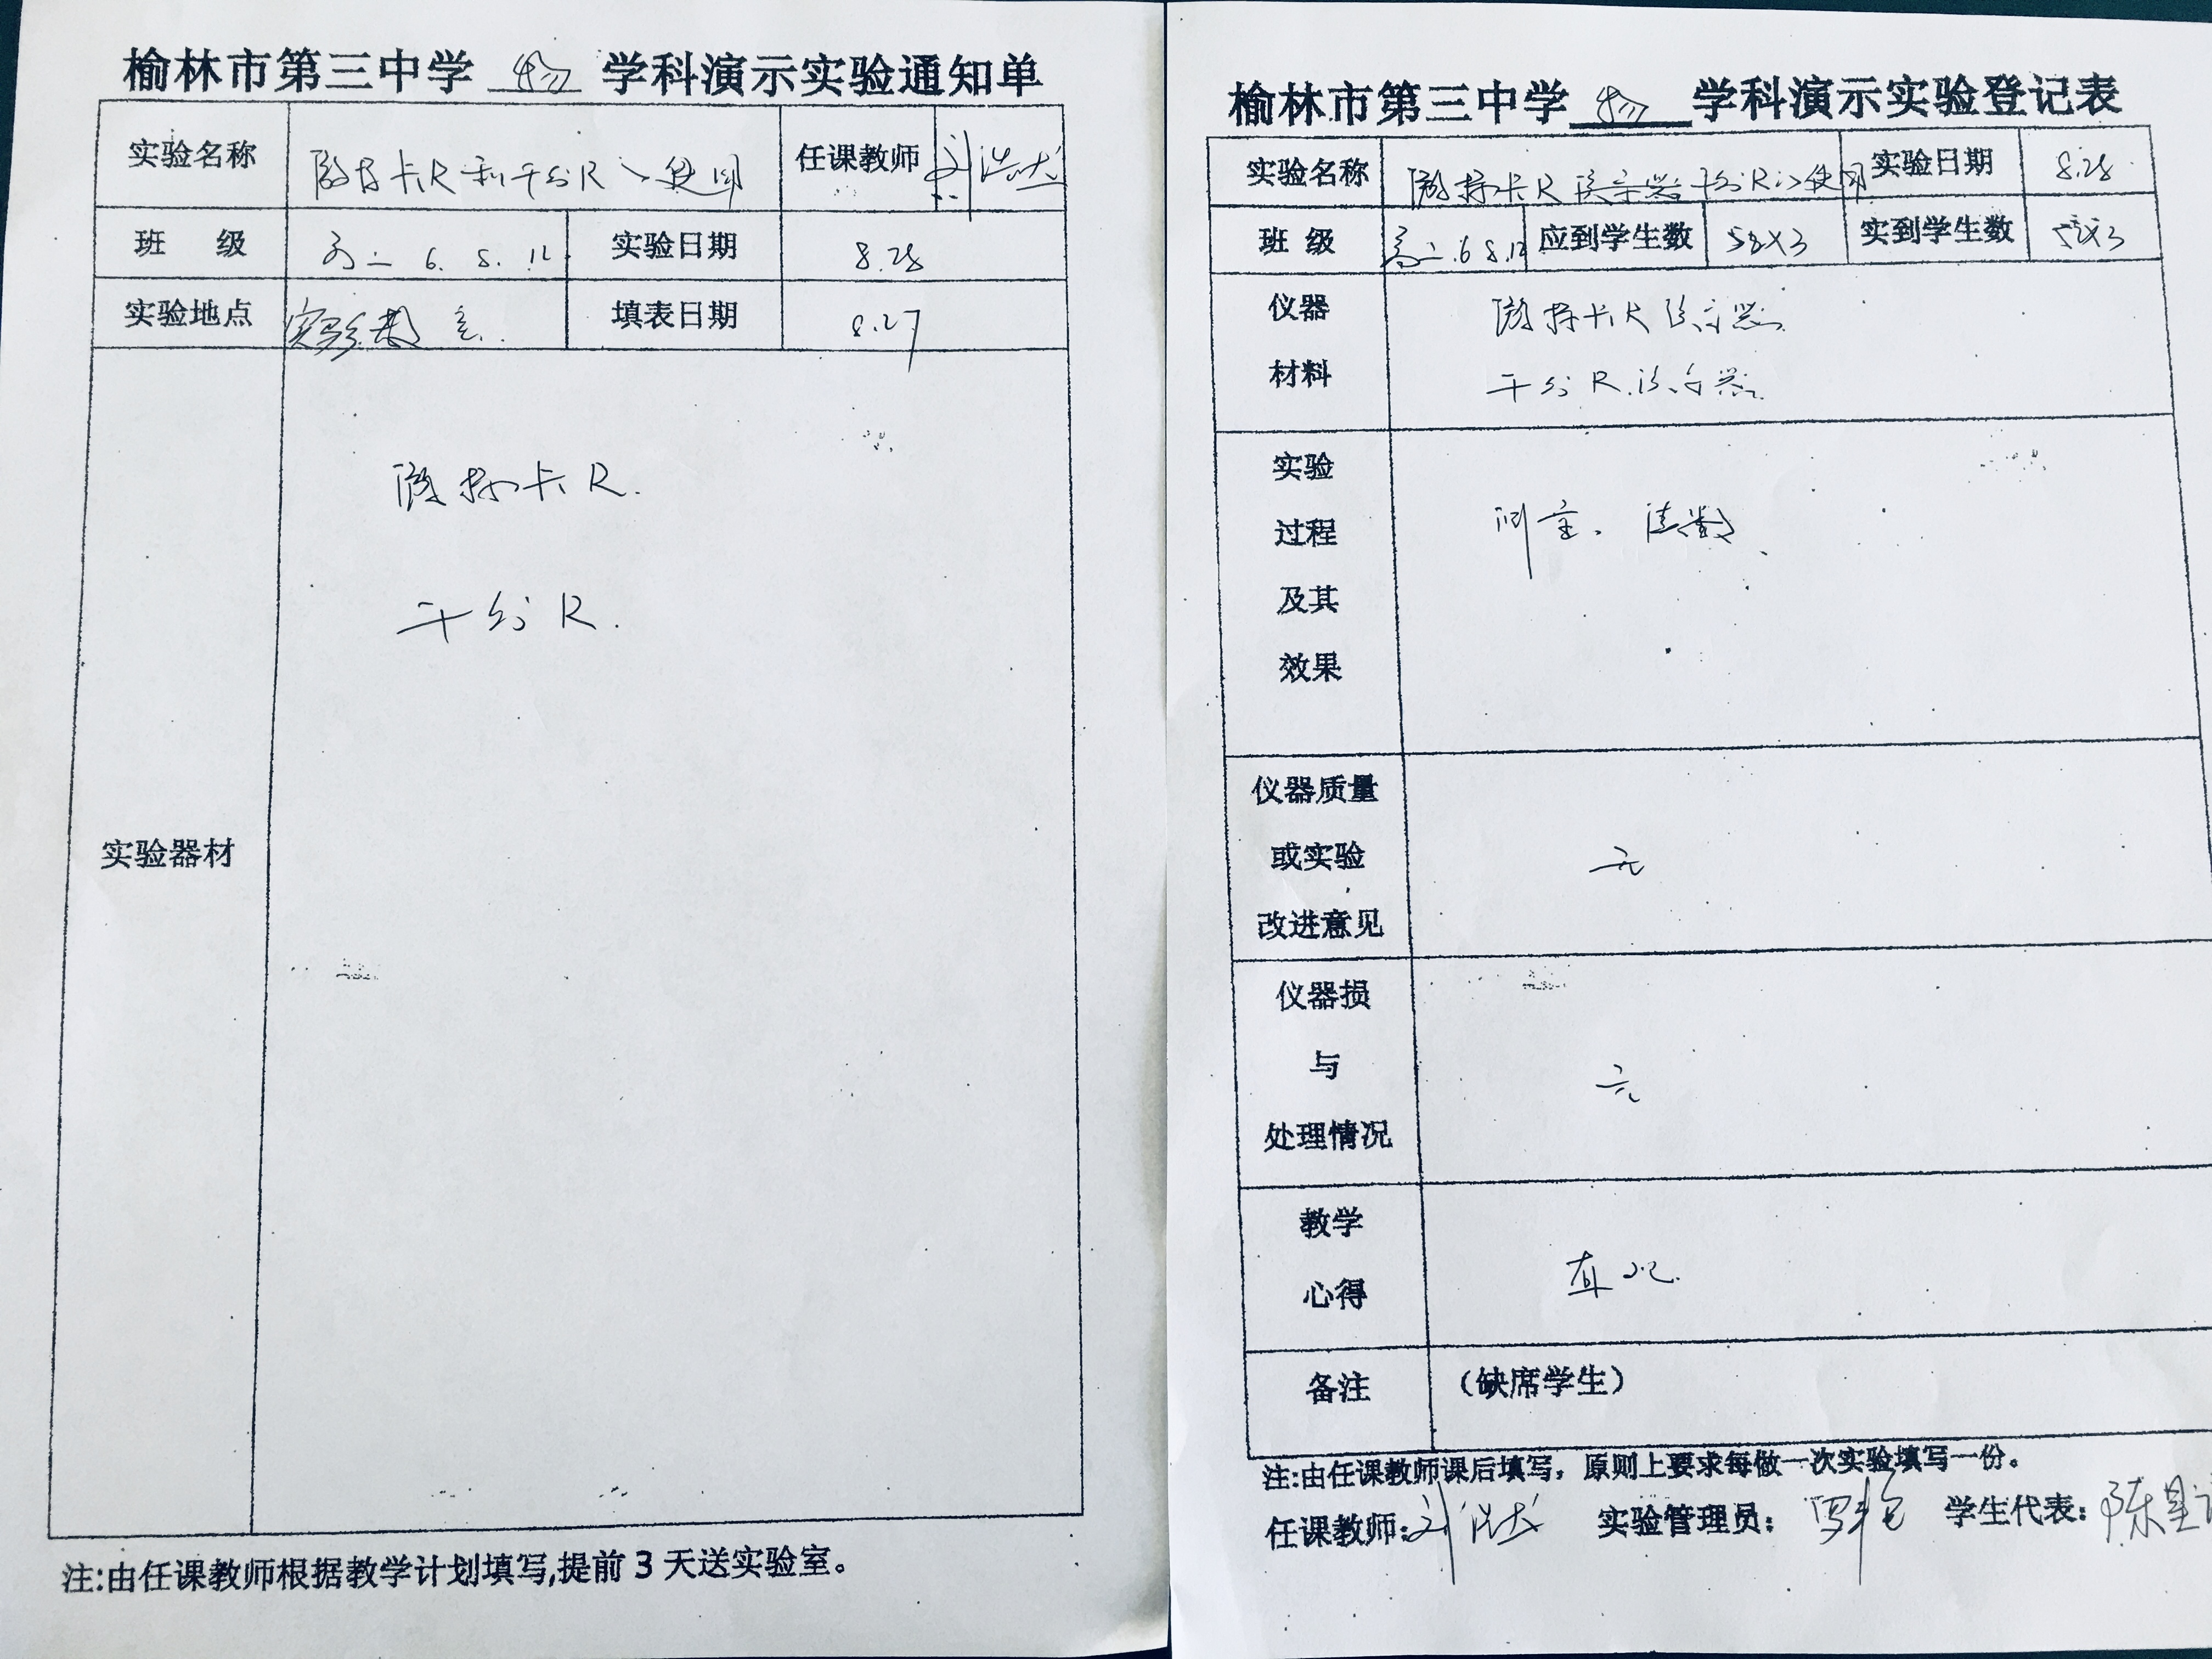 榆林市第三中学 物 学科演示实验通知单
实验名称 游标卡尺和千分尺的使用 任课教师 刘浩龙
班 级 高二 6. 8. 12 实验日期 8.28
实验地点 实验室 填表日期 8.27
实验器材
游标卡尺.
千分尺.
注:由任课教师根据教学计划填写,提前3天送实验室。
榆林市第三中学 物 学科演示实验登记表
实验名称 游标卡尺演示器千分尺的使用 实验日期 8.28
班 级 高二.6 8.12 应到学生数 58×3 实到学生数 58×3
仪器
材料
游标卡尺演示器
千分尺演示器
实验
过程
及其
效果
测量、读数、
仪器质量
或实验
改进意见
无
仪器损
与
处理情况
无
教学
心得
直观
备注 (缺席学生)
注:由任课教师课后填写,原则上要求每做一次实验填写一份。
任课教师:刘浩龙 实验管理员: 学生代表:陈星